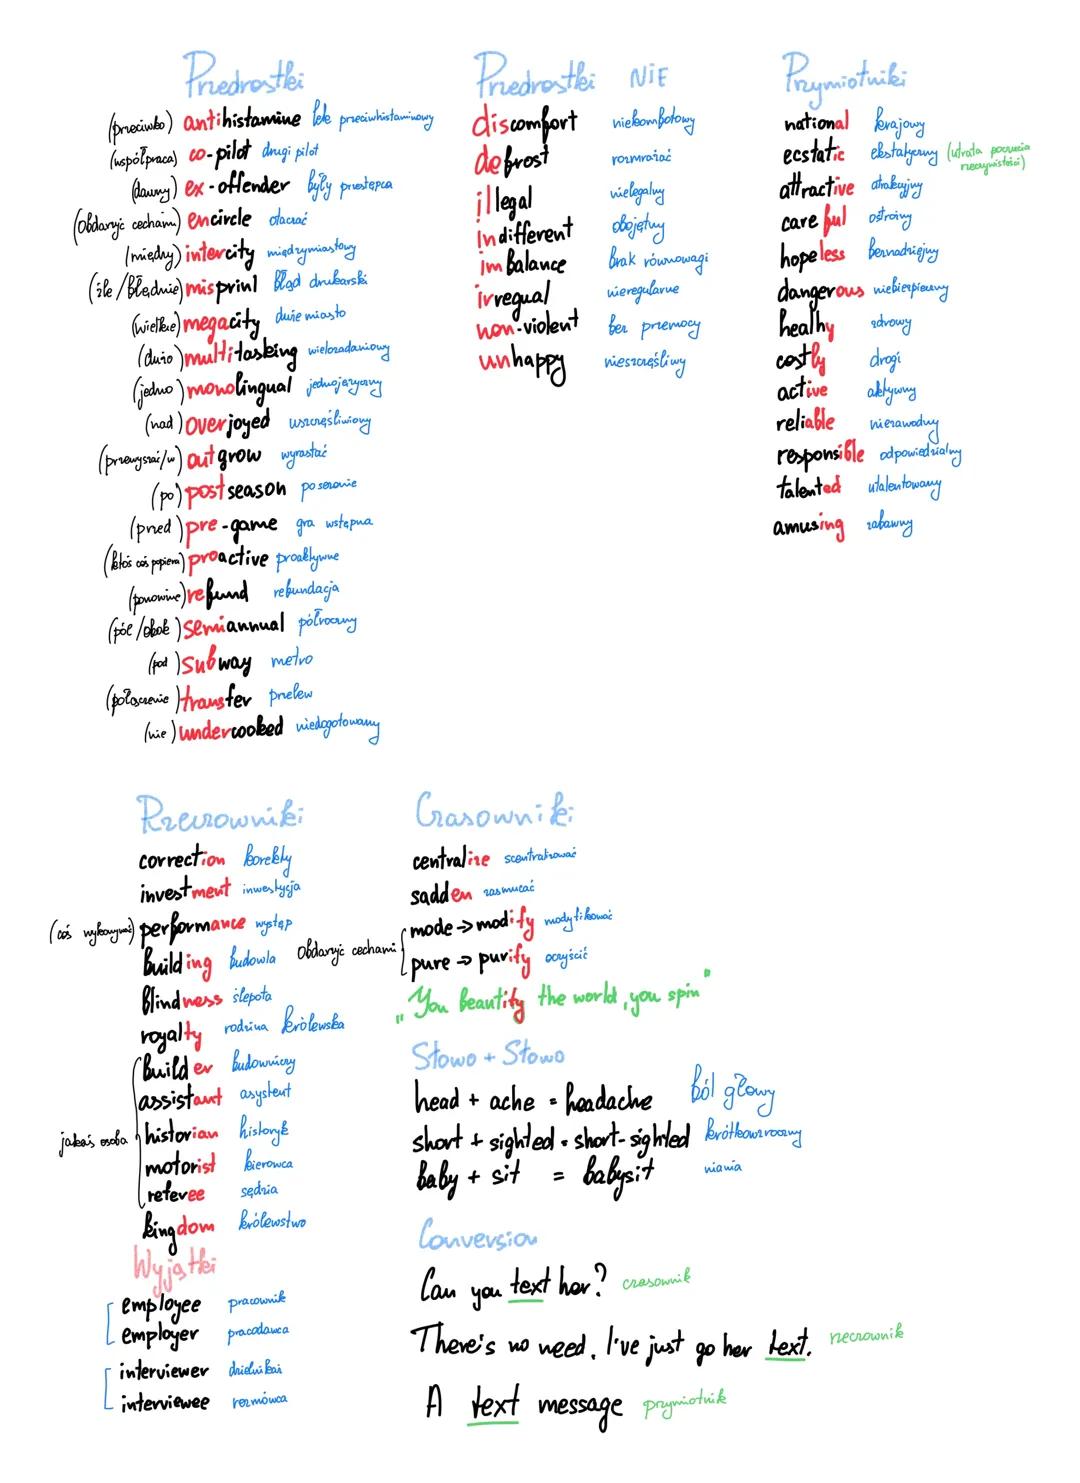 Przedrostki
(przeciwko) antihistamine lek przeciwhistaminowy
(współpraca) co-pilot drugi pilot
(dawny) ex-offender były przestępca
(Obdarzyć cechami) encircle otaczać
(między) intercity międzymiastowy
(źle/błędnie) misprint błąd drukarski
(wielkie) megacity duże miasto
(dużo) multitasking wielozadaniowy
(jedno) monolingual jednojęzyczny
(nad) overjoyed uszczęśliwiony
(przewyższać/w) outgrow wyrastać
(po) postseason po sezonie
(przed) pre-game gra wstępna
(ktoś coś popiera) proactive proaktywne
(ponownie) refund refundacja
(pół/obok) semiannual półroczny
(pod) subway metro
(połączenie) transfer przelew
(nie) undercooked niedogotowany
Przedrostki NIE
discomfort niekomfotowy
defrost rozmrażać
illegal nielegalny
indifferent obojętny
imbalance brak równowagi
irregual nieregularne
non-violent bez przemocy
unhappy nieszczęśliwy
Przymiotniki
national krajowy
ecstatic ekstatyczny (utrata poczucia
rzeczywistości)
attractive atrakcyjny
careful ostrożny
hopeless beznadziejny
dangerous niebezpieczny
healhy zdrowy
costly drogi
active aktywny
reliable niezawodny
responsible odpowiedzialny
talented utalentowany
amusing zabawny
Rzeczowniki
correction korekty
investment inwestycja
(coś wykonywać) performance występ
building budowla
blindness ślepota
royalty rodzina królewska
builder budowniczy
assistant asystent
jakaś osoba historian historyk
motorist kierowca
referee sędzia
kingdom królewstwo
Wyjątki
employee pracownik
employer pracodawca
interviewer dzielnikaż
interviewee rozmówca
Czasowniki
centralize scentralizować
sadden zasmucać
mode → modify modyfikować
Obdarzyć cechami
pure → purify oczyścić
"You beautify the world, you spin"
Słowo + Słowo
head + ache = headache ból głowy
short + sighted = short-sighted krótkowzroczny
baby + sit = babysit niania
Conversion
Can you text her? czasownik
There's no need, I've just go her text. rzeczownik
A text message przymiotnik